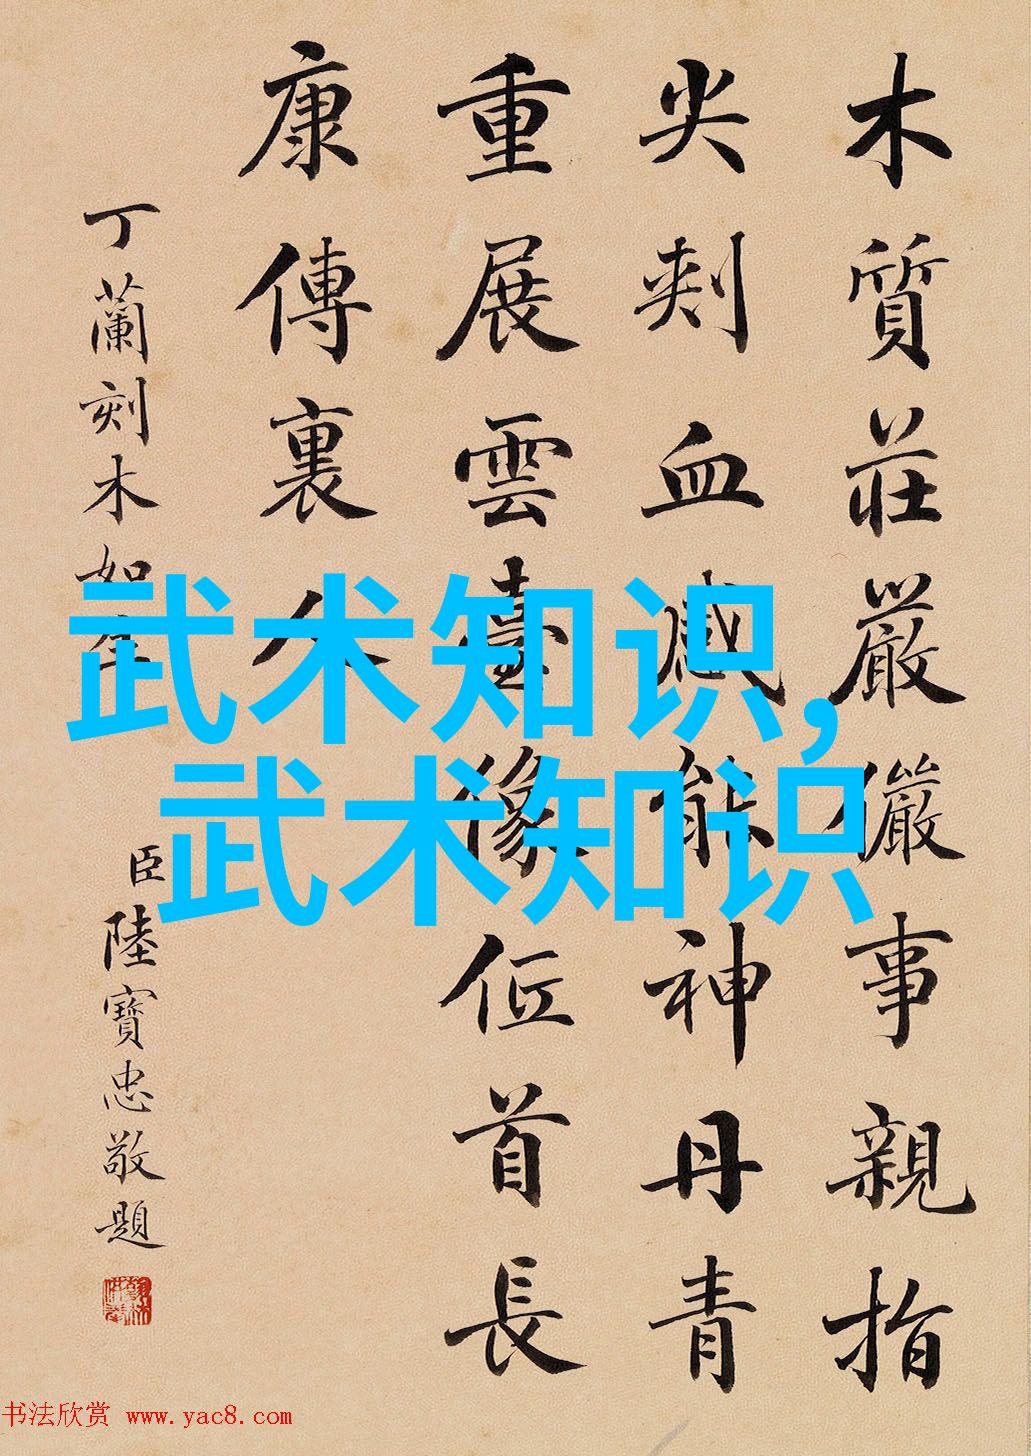 木質莊嚴儼事親指
尖刺血感能神丹青
重展雲臺像位首長
康傳裏人
丁蘭刻木如生
臣陸寶忠敬題
武术知识,
武术知识
书法欣赏 www.yac8.com